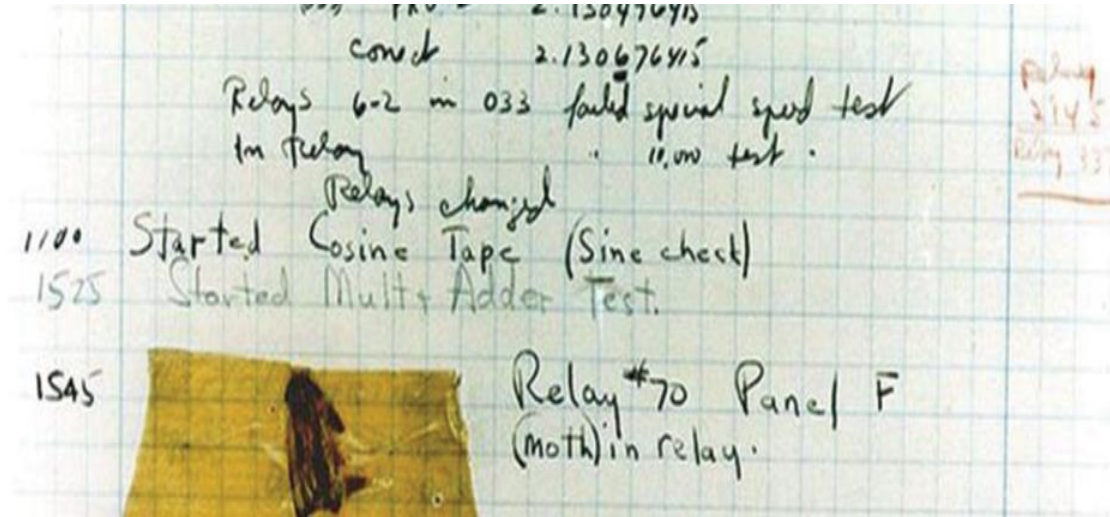 PRO 2 2.130476415
conect 2.130676415
Relays 6-2 in 033 failed special speed test
In Relay " 10,000 test .
Relays changed
1100 Started Cosine Tape (Sine check)
1525 Started Mult + Adder Test.
1545 Relay #70 Panel F
(moth) in relay.
Relay
2145
Relay 337